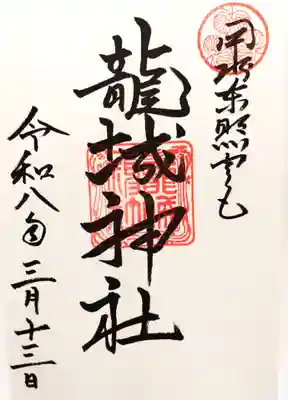 東照宮
龍城神社
令和八年三月十三日